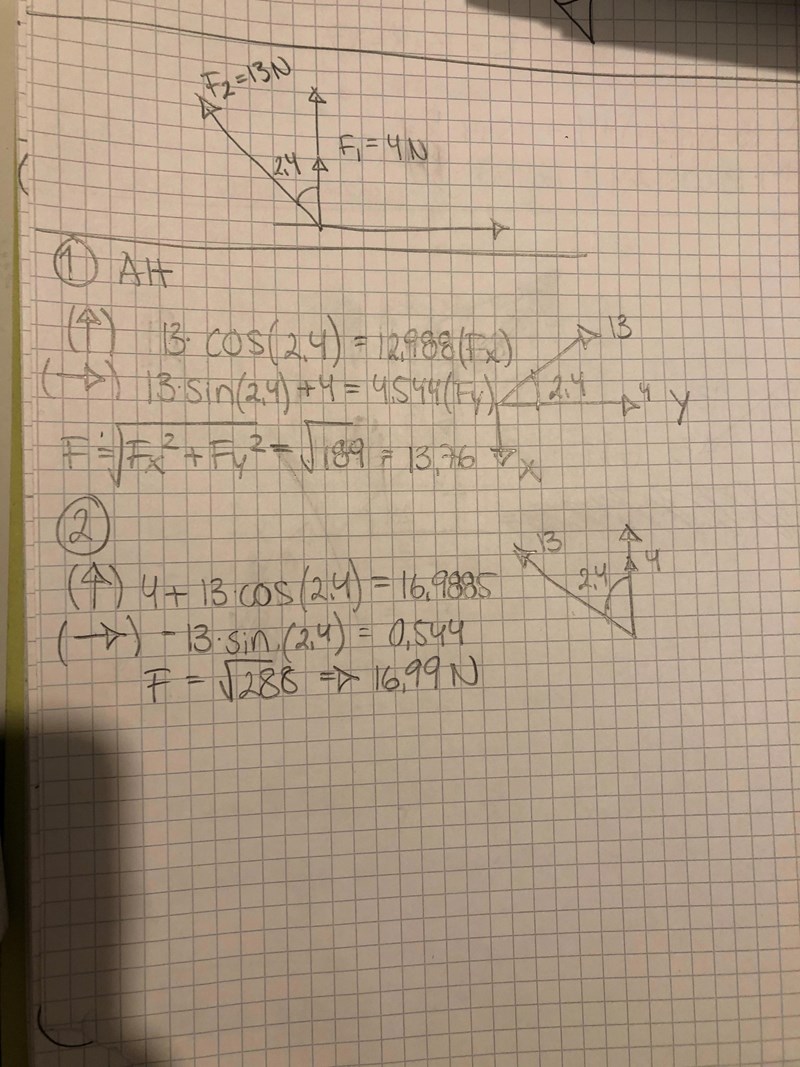 F₂=13N
2,4
F₁=4N
① Alt
(↑) 13· cos(2,4) = 12,988(Fx)
13
(→) 13·sin(2,4)+4 = 4,544(Fy)
2,4
4 Y
F = √Fx²+Fy² = √189 = 13,76
X
②
13
4
2,4
(↑) 4+13·cos(2,4) = 16,9885
(→) -13·sin(2,4) = 0,544
F = √288 => 16,99N